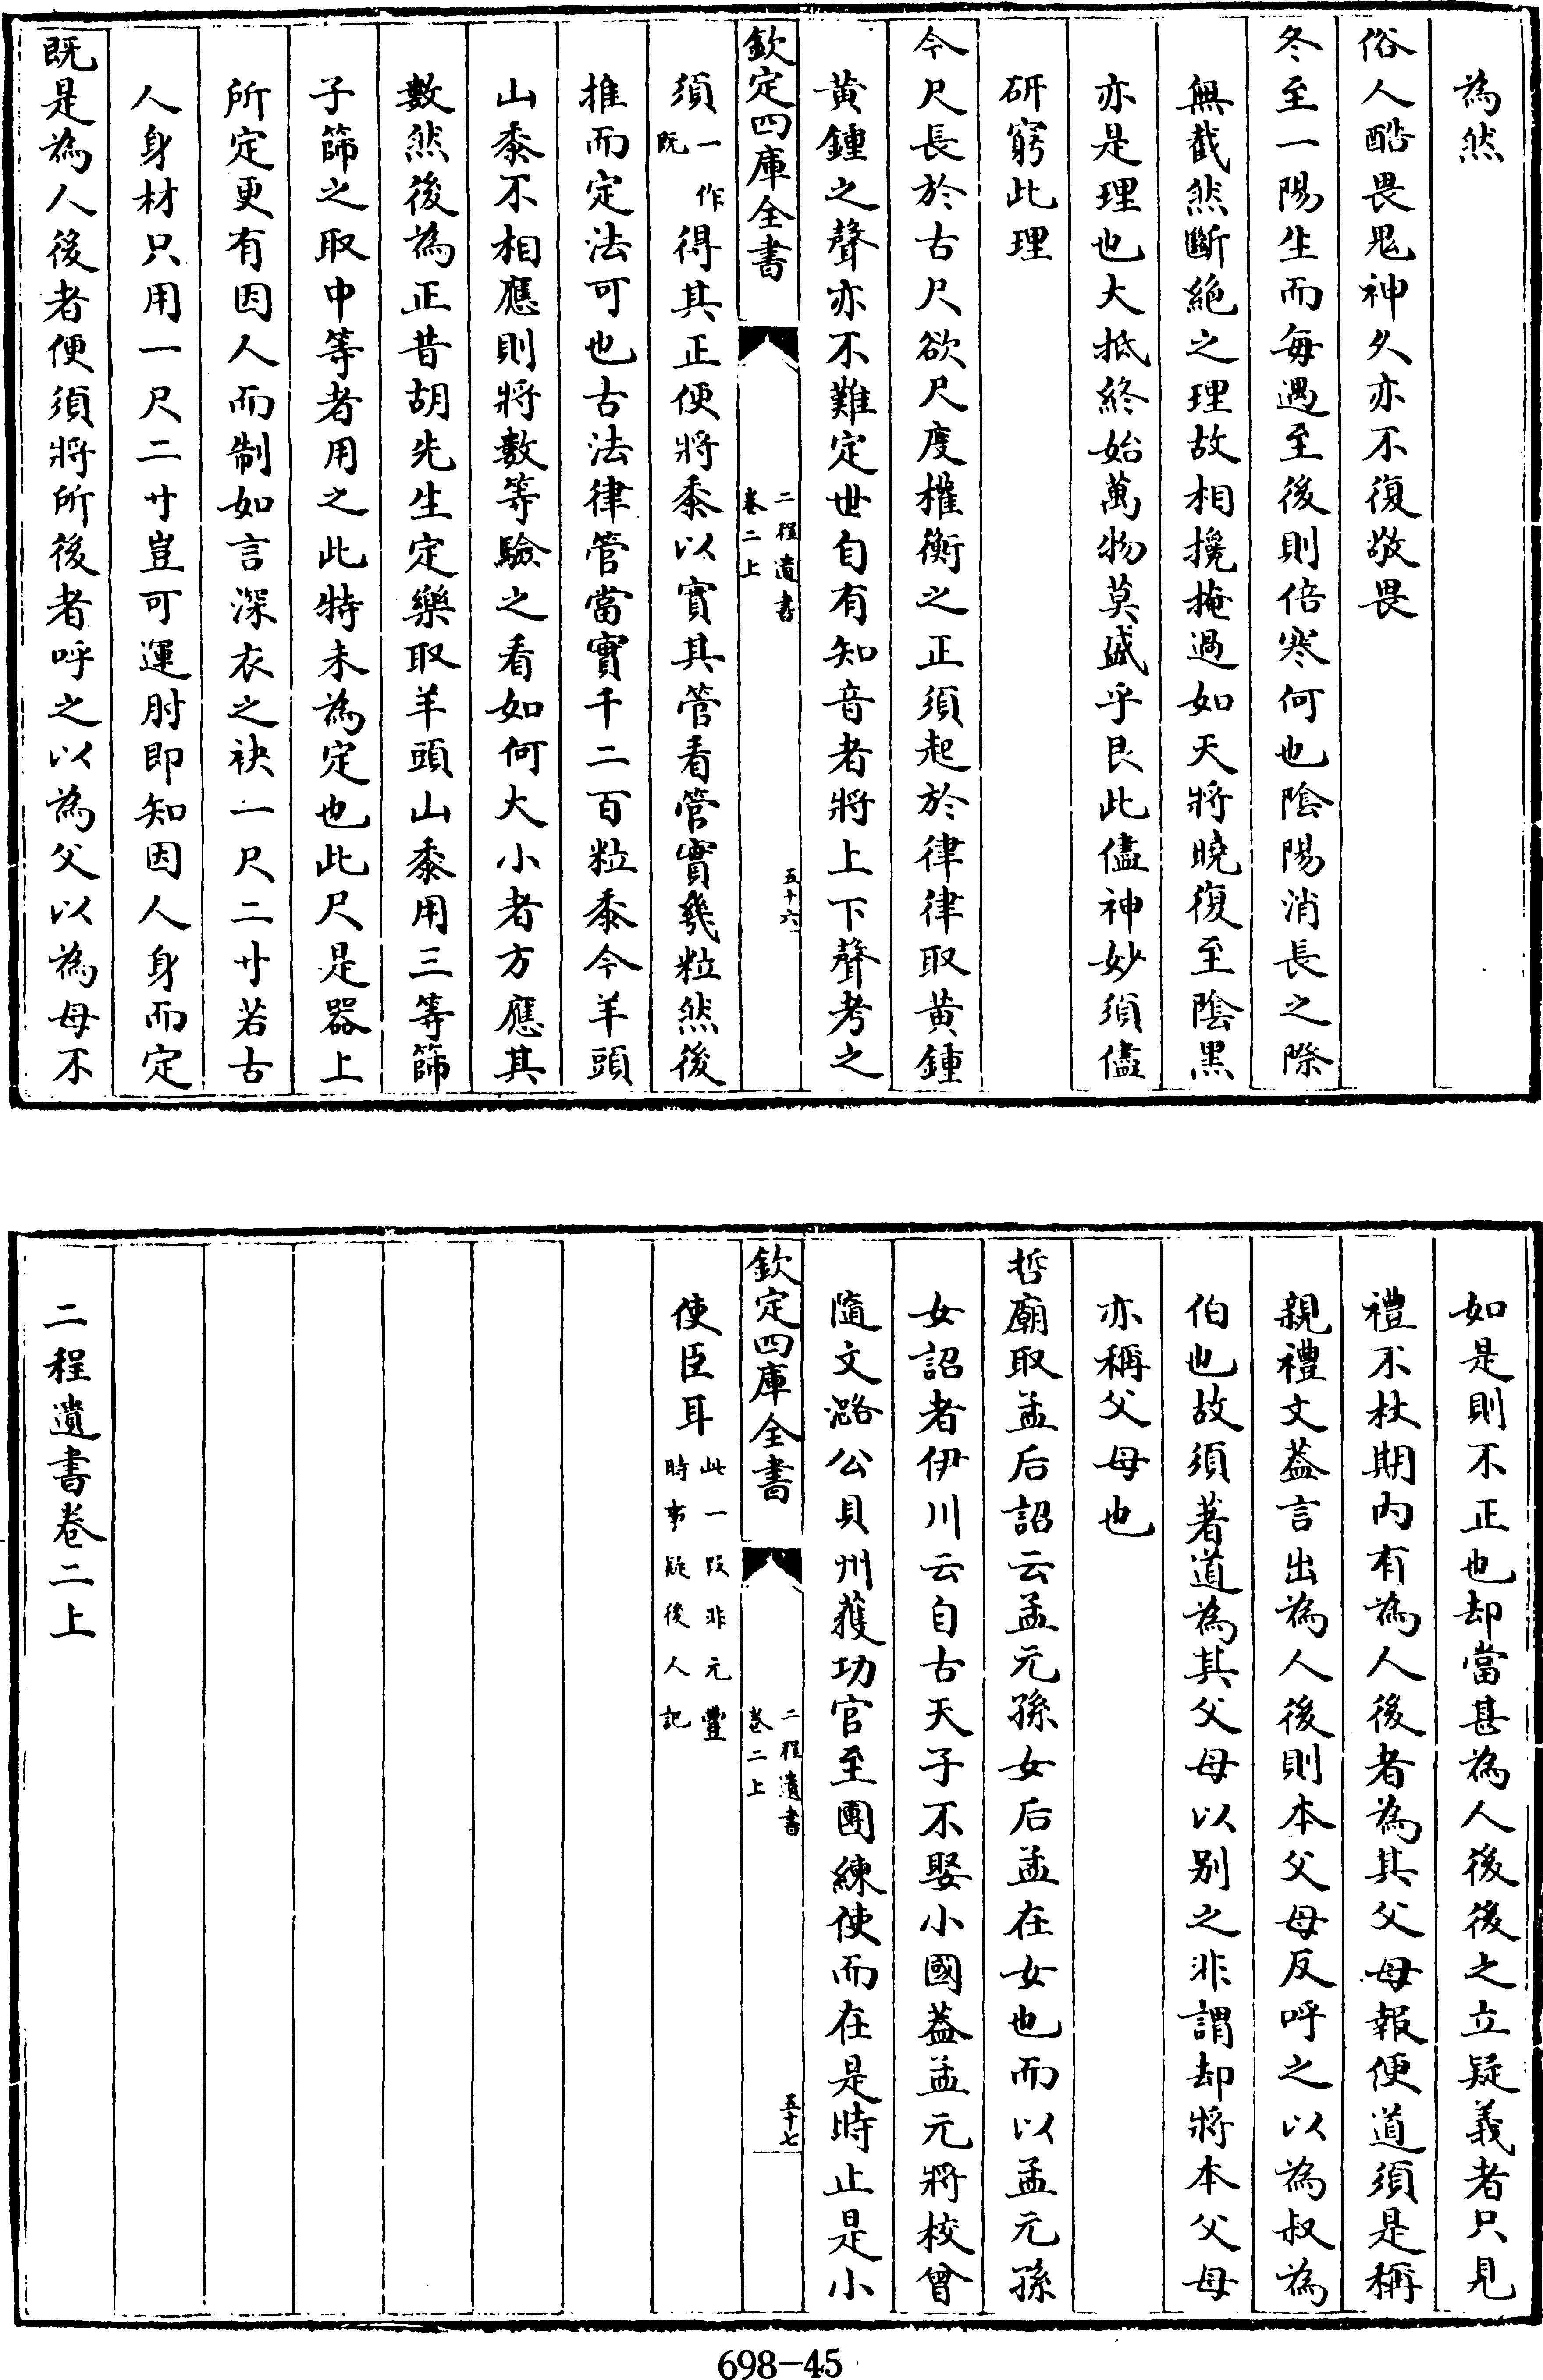 為然
俗人酷畏鬼神久亦不復敬畏
冬至一陽生而每遇至後則倍寒何也陰陽消長之際
無截然斷絶之理故相攙掩過如天將曉復至陰黑
亦是理也大抵終始萬物莫盛乎艮此儘神妙須儘
研窮此理
今尺長於古尺欲尺度權衡之正須起於律律取黄鍾
黄鍾之聲亦不難定世自有知音者將上下聲考之
欽定四庫全書
二程遺書
卷二上
五十六
須一作既得其正便將黍以實其管看管實幾粒然後
推而定法可也古法律管當實千二百粒黍今羊頭
山黍不相應則將數等驗之看如何大小者方應其
數然後為正昔胡先生定樂取羊頭山黍用三等篩
子篩之取中等者用之此特未為定也此尺是器上
所定更有因人而制如言深衣之袂一尺二寸若古
人身材只用一尺二寸豈可運肘即知因人身而定
既是為人後者便須將所後者呼之以為父以為母不
如是則不正也却當甚為人後後之立疑義者只見
禮不杖期内有為人後者為其父母報便道須是稱
親禮文蓋言出為人後則本父母反呼之以為叔為
伯也故須著道為其父母以别之非謂却將本父母
亦稱父母也
哲廟取孟后詔云孟元孫女后孟在女也而以孟元孫
女詔者伊川云自古天子不娶小國蓋孟元將校曾
隨文潞公貝州獲功官至團練使而在是時止是小
欽定四庫全書
二程遺書
卷二上
五十七
使臣耳此一段非元豐時事疑後人記
二程遺書卷二上
698-45